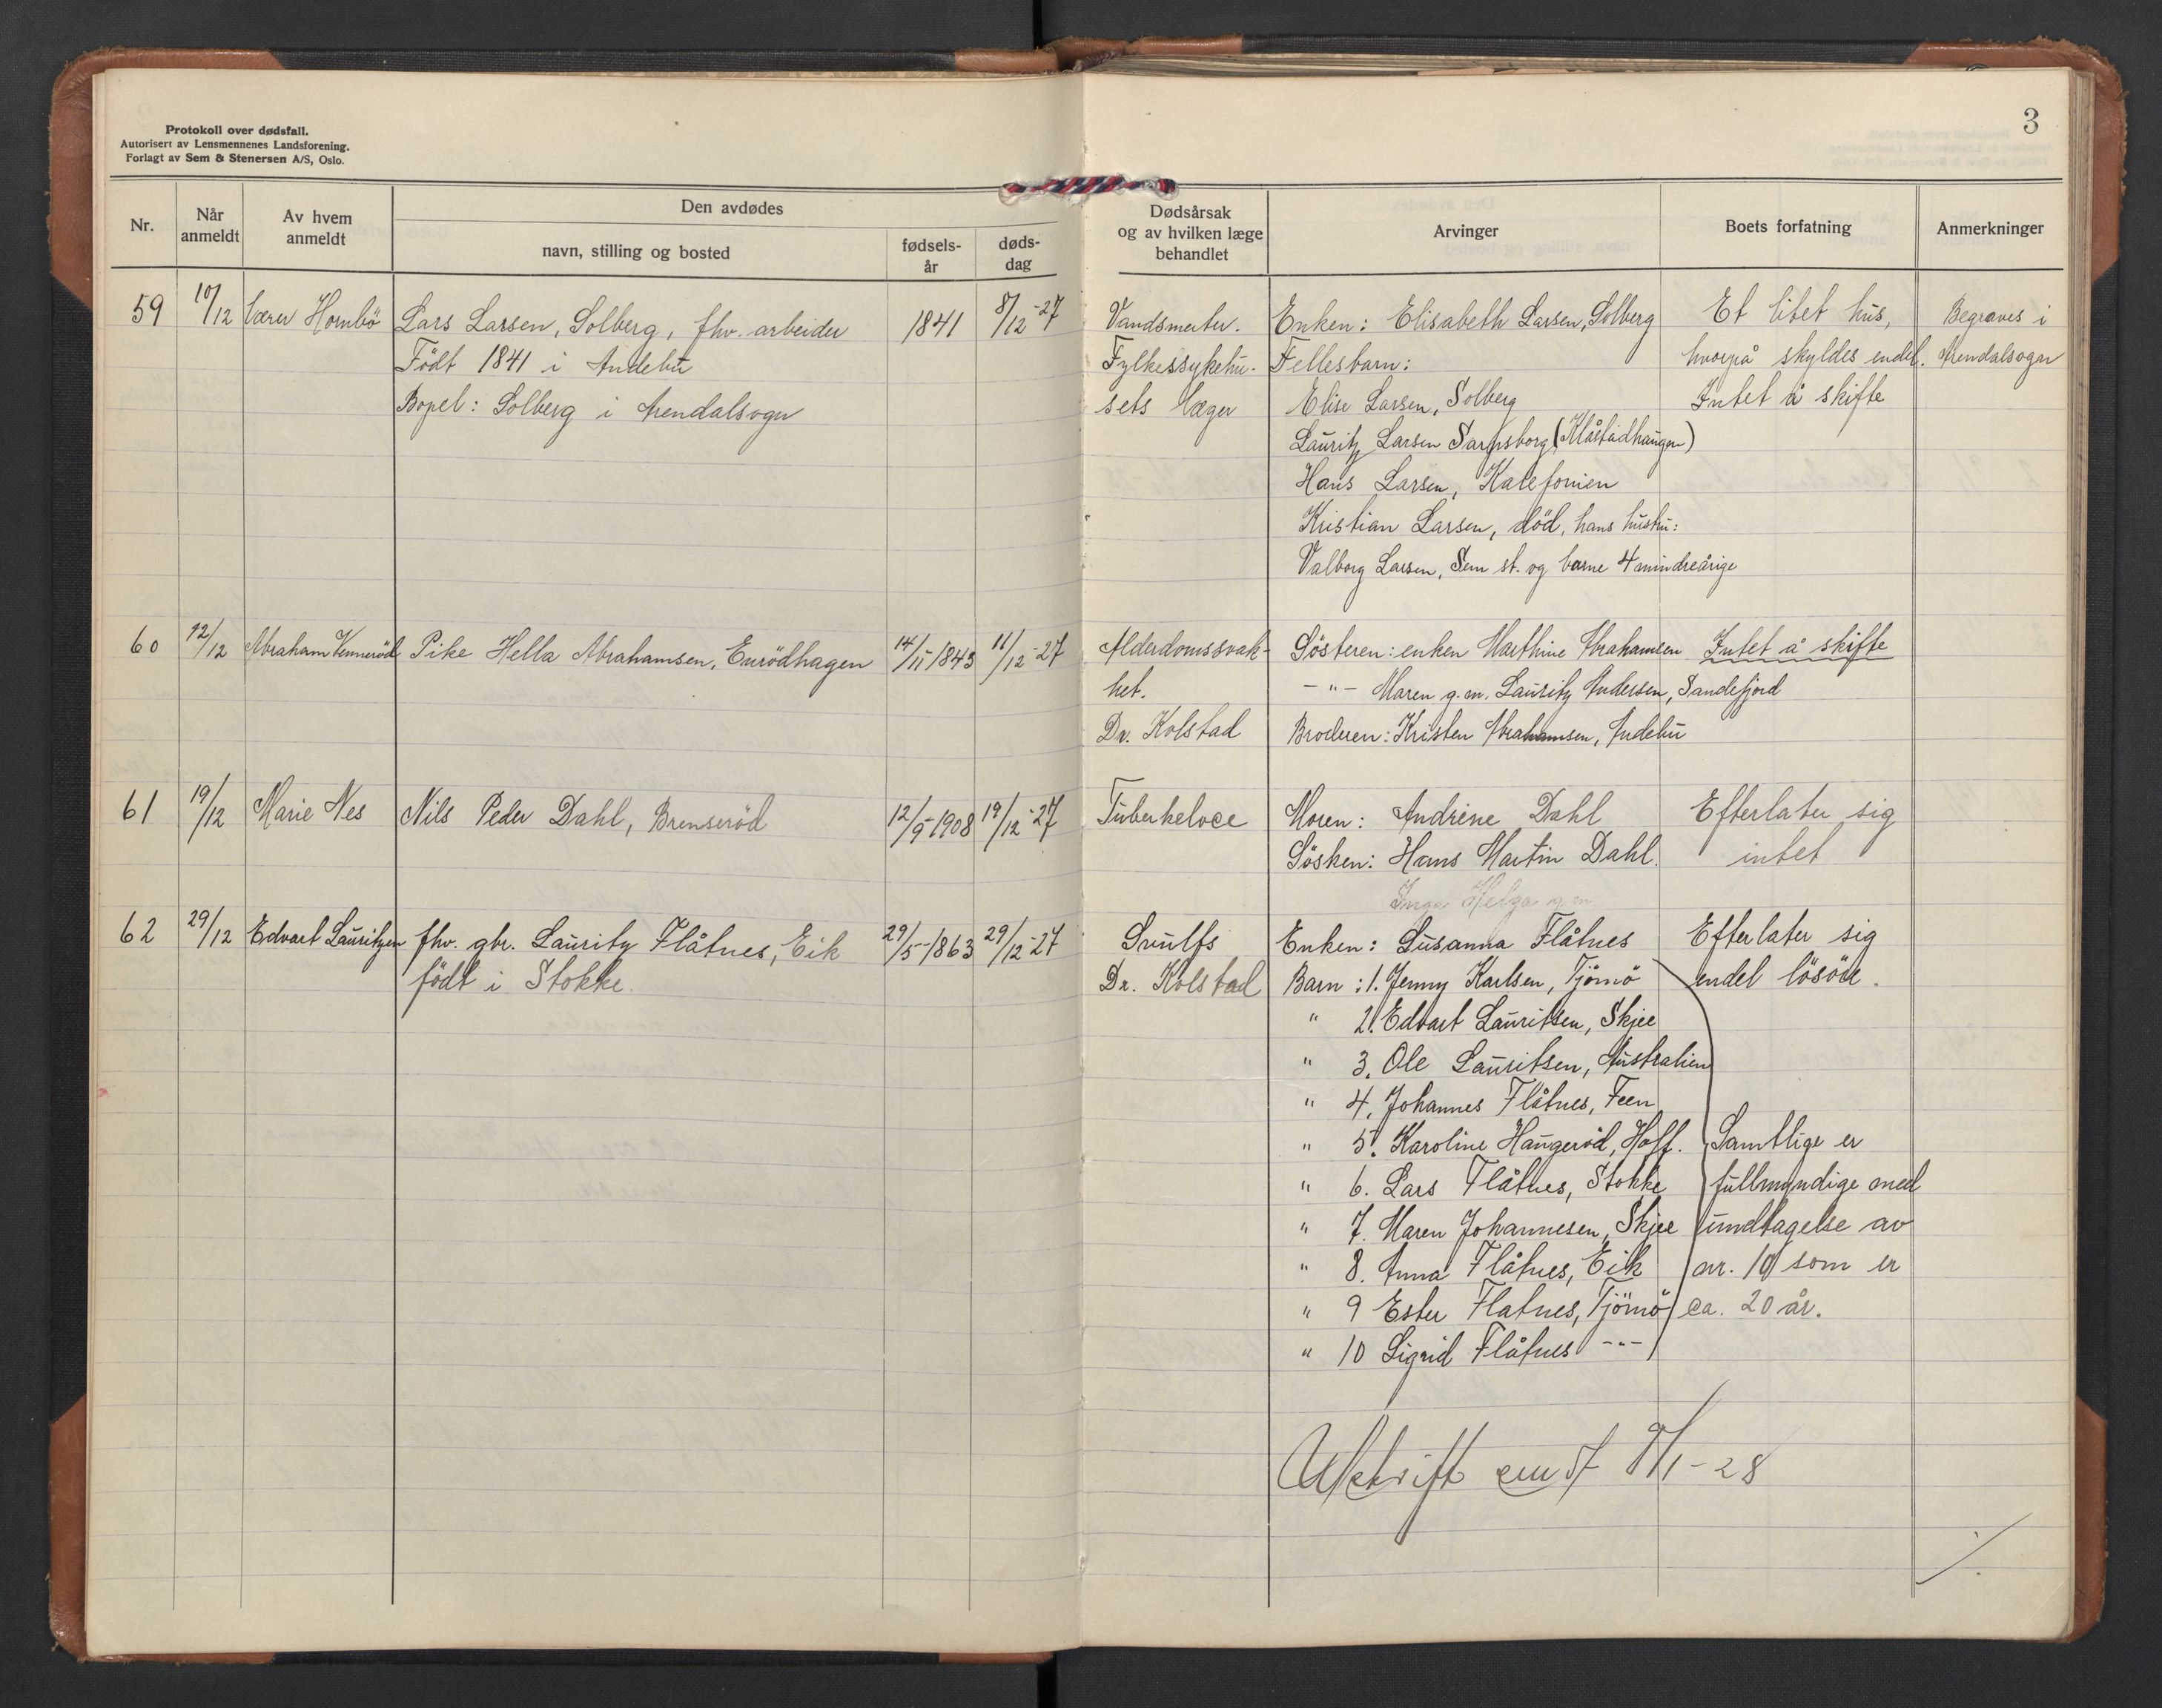 Protokoll over dødsfall.
Autorisert av Lensmennenes Landsforening.
Forlagt av Sem & Stenersen A/S, Oslo.
3
Nr.
Når anmeldt
Av hvem anmeldt
Den avdødes
navn, stilling og bosted
fødsels-år
døds-dag
Dødsårsak og av hvilken læge behandlet
Arvinger
Boets forfatning
Anmerkninger
59 10/12 Lærer Hornbö Lars Larsen, Solberg, fhv. arbeider 1841 8/12-27
Födt 1841 i Andebu
Bopel: Solberg i Arendalsogn
Fylkessykehu-
sets læger
Enken: Elisabeth Larsen, Solberg
Fellesbarn:
Elise Larsen, Solberg
Lauritz Larsen Sarpsborg (Klåstadhaugen)
Hans Larsen, Kalefonien
Kristian Larsen, död, hans hustru:
Valborg Larsen, Sem st. og barne 4 mindreårige
Et litet hus,
hvorpå skyldes endel.
Intet å skifte
Begraves i
Arendalsogn
60 12/12 Abraham Venneröd Pike Hella Abrahamsen, Enrödhagen 14/11 1843 11/12-27
Alderdomssvak-
het.
Dr. Kolstad
Sösteren: enken Marthine Abrahamsen
-"- Maren g.m. Lauritz Andersen, Sandefjord
Broderen: Kristen Abrahamsen, Andebu
Intet å skifte
61 19/12 Marie Nes Nils Peder Dahl, Brenseröd 12/9-1908 19/12-27
Tuberkeloce
Moren: Andrine Dahl
Sösken: Hans Martin Dahl.
Inga Helga g.m.
Efterlater sig
intet
62 29/12 Edvart Lauritzen fhv. gbr. Lauritz Flåtnes, Eik 29/5-1863 29/12-27
födt i Stokke.
Dr. Kolstad
Enken: Susanna Flåtnes
Barn: 1. Jenny Karlsen, Tjömö
" 2. Edvart Lauritsen, Skjee
" 3. Ole Lauritsen, Australien
" 4. Johannes Flåtnes, Feen
" 5. Karoline Haugeröd, Hoff.
" 6. Lars Flåtnes, Stokke
" 7. Maren Johannesen, Skjee
" 8. Anna Flåtnes, Eik
" 9 Ester Flatnes, Tjömö
" 10 Sigrid Flåtnes -"-
Efterlater sig
endel lösöre.
Samtlige er
fullmyndige med
undtagelse av
nr. 10 som er
ca. 20 år.
Utskrift sendt 9/1-28